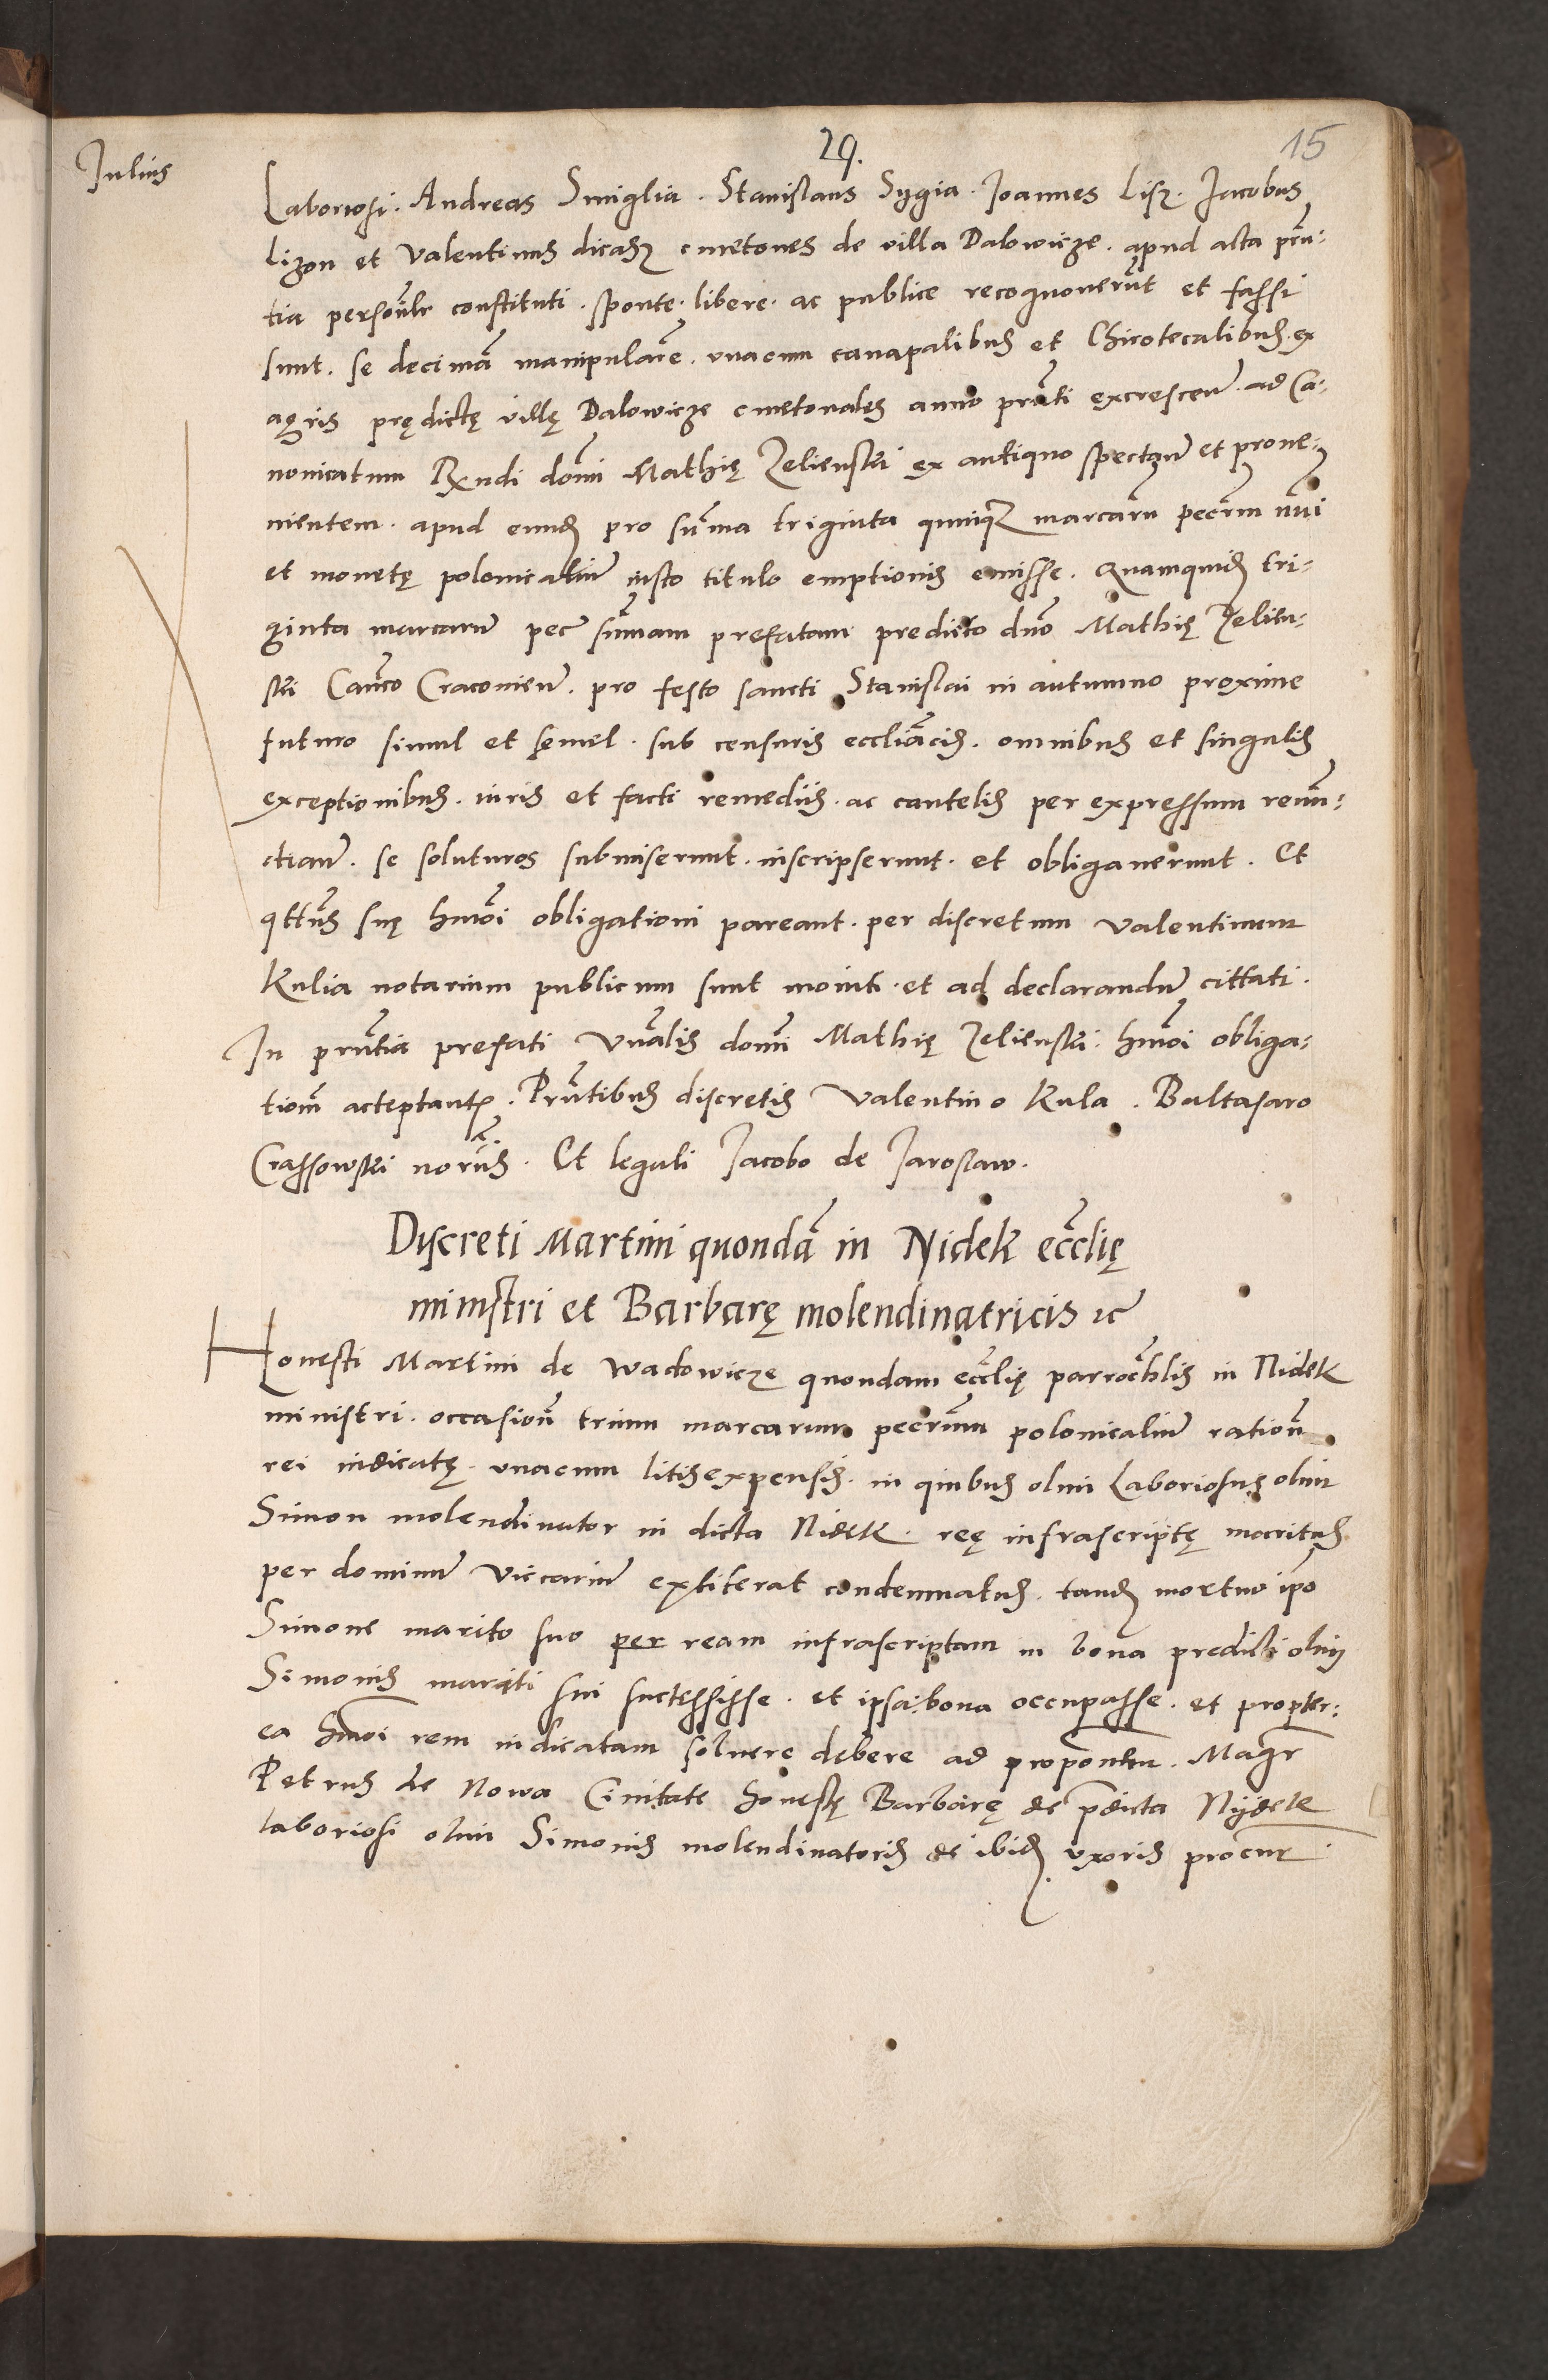 Julius
29.
15
Laboriosi. Andreas Smiglia. Stanislaus Sygia. Joannes Lisz. Jacobus
Lizon et Valentinus dicasz cmetones de villa Dalowicze. apud acta prñ-
tia personalr constituti. sponte. libere. ac publice recognouerũt et fassi
sunt. se decimã manipularẽ. vnacum canapalibus et Chirotecalibus. ex
agris prędictę villę Dalowicze cmetonales anno prñti excrescen̄. ad Ca-
nonicatum Rx̃ndi dom̃i Mathię Zelienski ex antiquo spectan̄ et proue-
nientem. apud eund pro sum̃a triginta quinqz marcaru pecũm nũi
et monetę polonicalium̃ iusto titulo emptionis emisse. Quamquid tri-
ginta marcarum̃ pec̃ sum̃am prefatam predicto dno Mathię Zelien-
ski Can̄co Cracouien̄. pro festo sancti Stanislai in autumno proxime
futuro simul et semel. sub censuris eccliãcis. omnibus et singulis
exceptionibus. iuris et facti remediis. ac cautelis per expressum renũ-
ctian̄. se soluturos submiserunt. inscripserunt. et obligauerunt. Et
qtt̃us suę hm̃oi obligationi pareant. per discretum Valentinum
Kulia notarium publicum sunt moniti. et ad declarandum̃ cittati.
In prñtia prefati Vñalis dom̃i Mathię Zelienski. hm̃oi obliga-
tiom̃ acteptant. Prñtibus discretis Valentino Kula. Baltasaro
Crassowski norijs. Et leguli Jacobo de Jaroslaw.
Discreti Martini quondã in Nidek ecc̃lię
ministri et Barbarę molendinatricis ec̃
Honesti Martini de Wadowicze quondam ecc̃lię parroc̃hlis in Nidek
ministri. occasioñ trium marcarum pecũm polonicalium̃ ratioñ
rei iudicatę. vnacum litis expensis. in quibus olim Laboriosus olim
Simon molendinator in dicta Nidek. reę infrascriptę maritus
per dominum̃ Viccarium̃ extiterat condemnatus. tand mortuo ip̃o
Simone marito suo per ream infrascriptam in bona predicti olim
Simonis mariti sui suctessisse. et ipsa bona occupasse. et propter-
ea hm̃oi rem iudicatam soluere debere ad proponen̄. Magr
Petrus de Nowa Ciuitate honestę Barbarę de p̃dicta Nydek
laboriosi olim Simonis molendinatoris de ibid vxoris procur